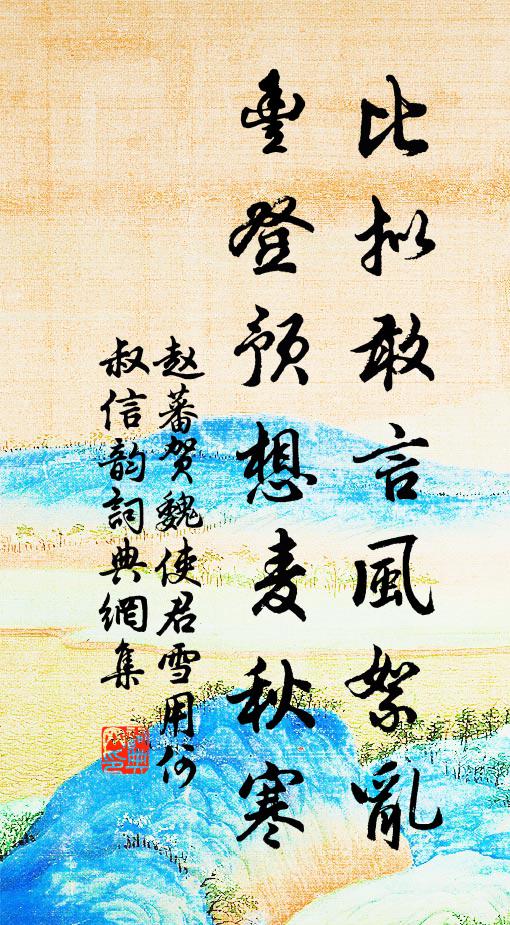 比拟敢言風絮亂
豊登预想麦秋寒
赵蕃贺魏使君雪用何
叔信韵詞典網集